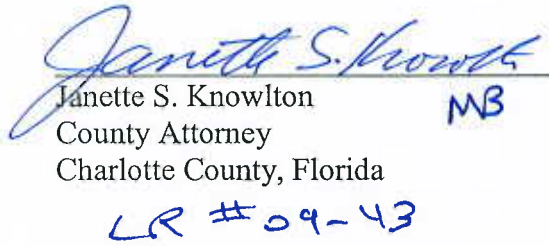 Janette S. Knowlton
Janette S. Knowlton
MB
County Attorney
Charlotte County, Florida
LR #09-43